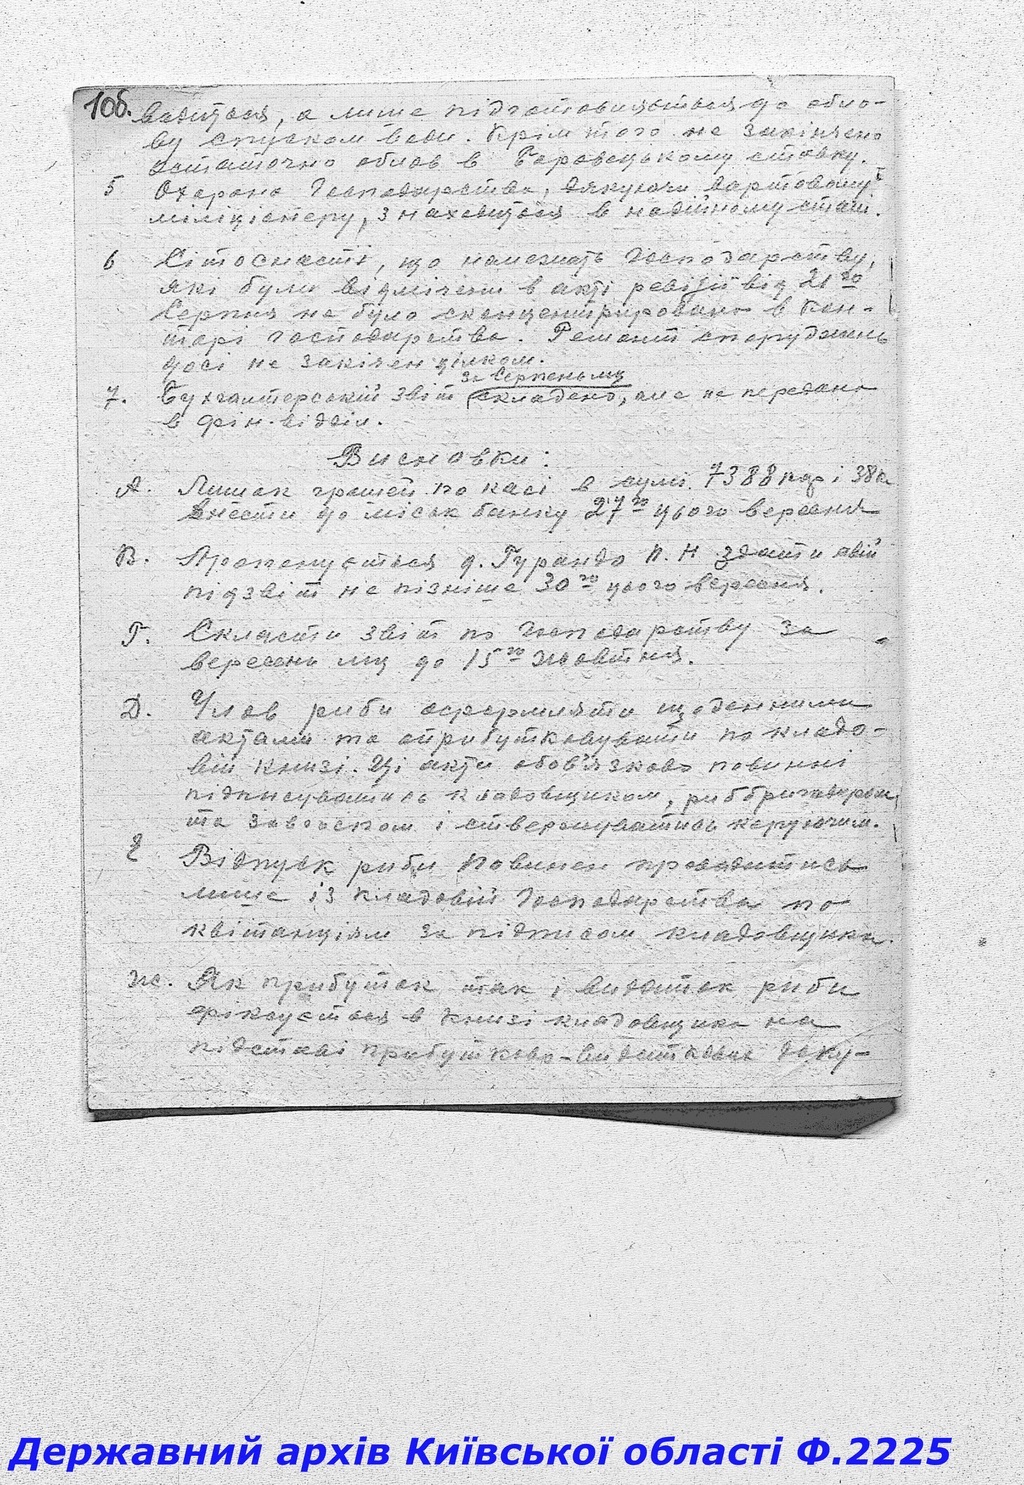 10б. вадиться, а лише підготовляється до обло-
ву спуском води. Крім того не закінчено
остаточно облов в ставку.
5 Охорона Господарства, дякуючи вартовому
міліціонеру, знаходиться в надійному стані.
6 Сітоснасті, що належать Господарству,
які були відмічені в акті ревізії від 21го
Серпня не було сконцентрировано в кон-
торі господарства. Ремонт споруджень
досі не закінчен цілком.
за Серпень м-ц
7. Бухгалтерський звіт складено, але не передано
в фін. відділ.
Висновки:
А. Лишок грошей по касі в сумі 7388 крб і 38 к.
внести до міськ банку 27го цього вересня
В. Пропонується д. Гурандо П. Н здати свій
підзвіт не пізніше 30го цього вересня.
Г. Скласти звіт по Господарству за
вересень м-ц до 15го жовтня.
Д. Улов риби оформляти щоденними
актами та оприбутковувати по кладо-
вій книзі. Ці акти обов'язково повинні
підписуватись кладовщиком, риббригадиром,
та завгоспом і стверджуватись керуючим.
Е Відпуск риби повинен проводитись
лише із кладовій Господарства по
квітанціям за підписом кладовщика.
Ж. Як прибуток так і видаток риби
фіксується в книзі кладовщика на
підставі прибутково-видаткових доку-
Державний архів Київської області Ф.2225